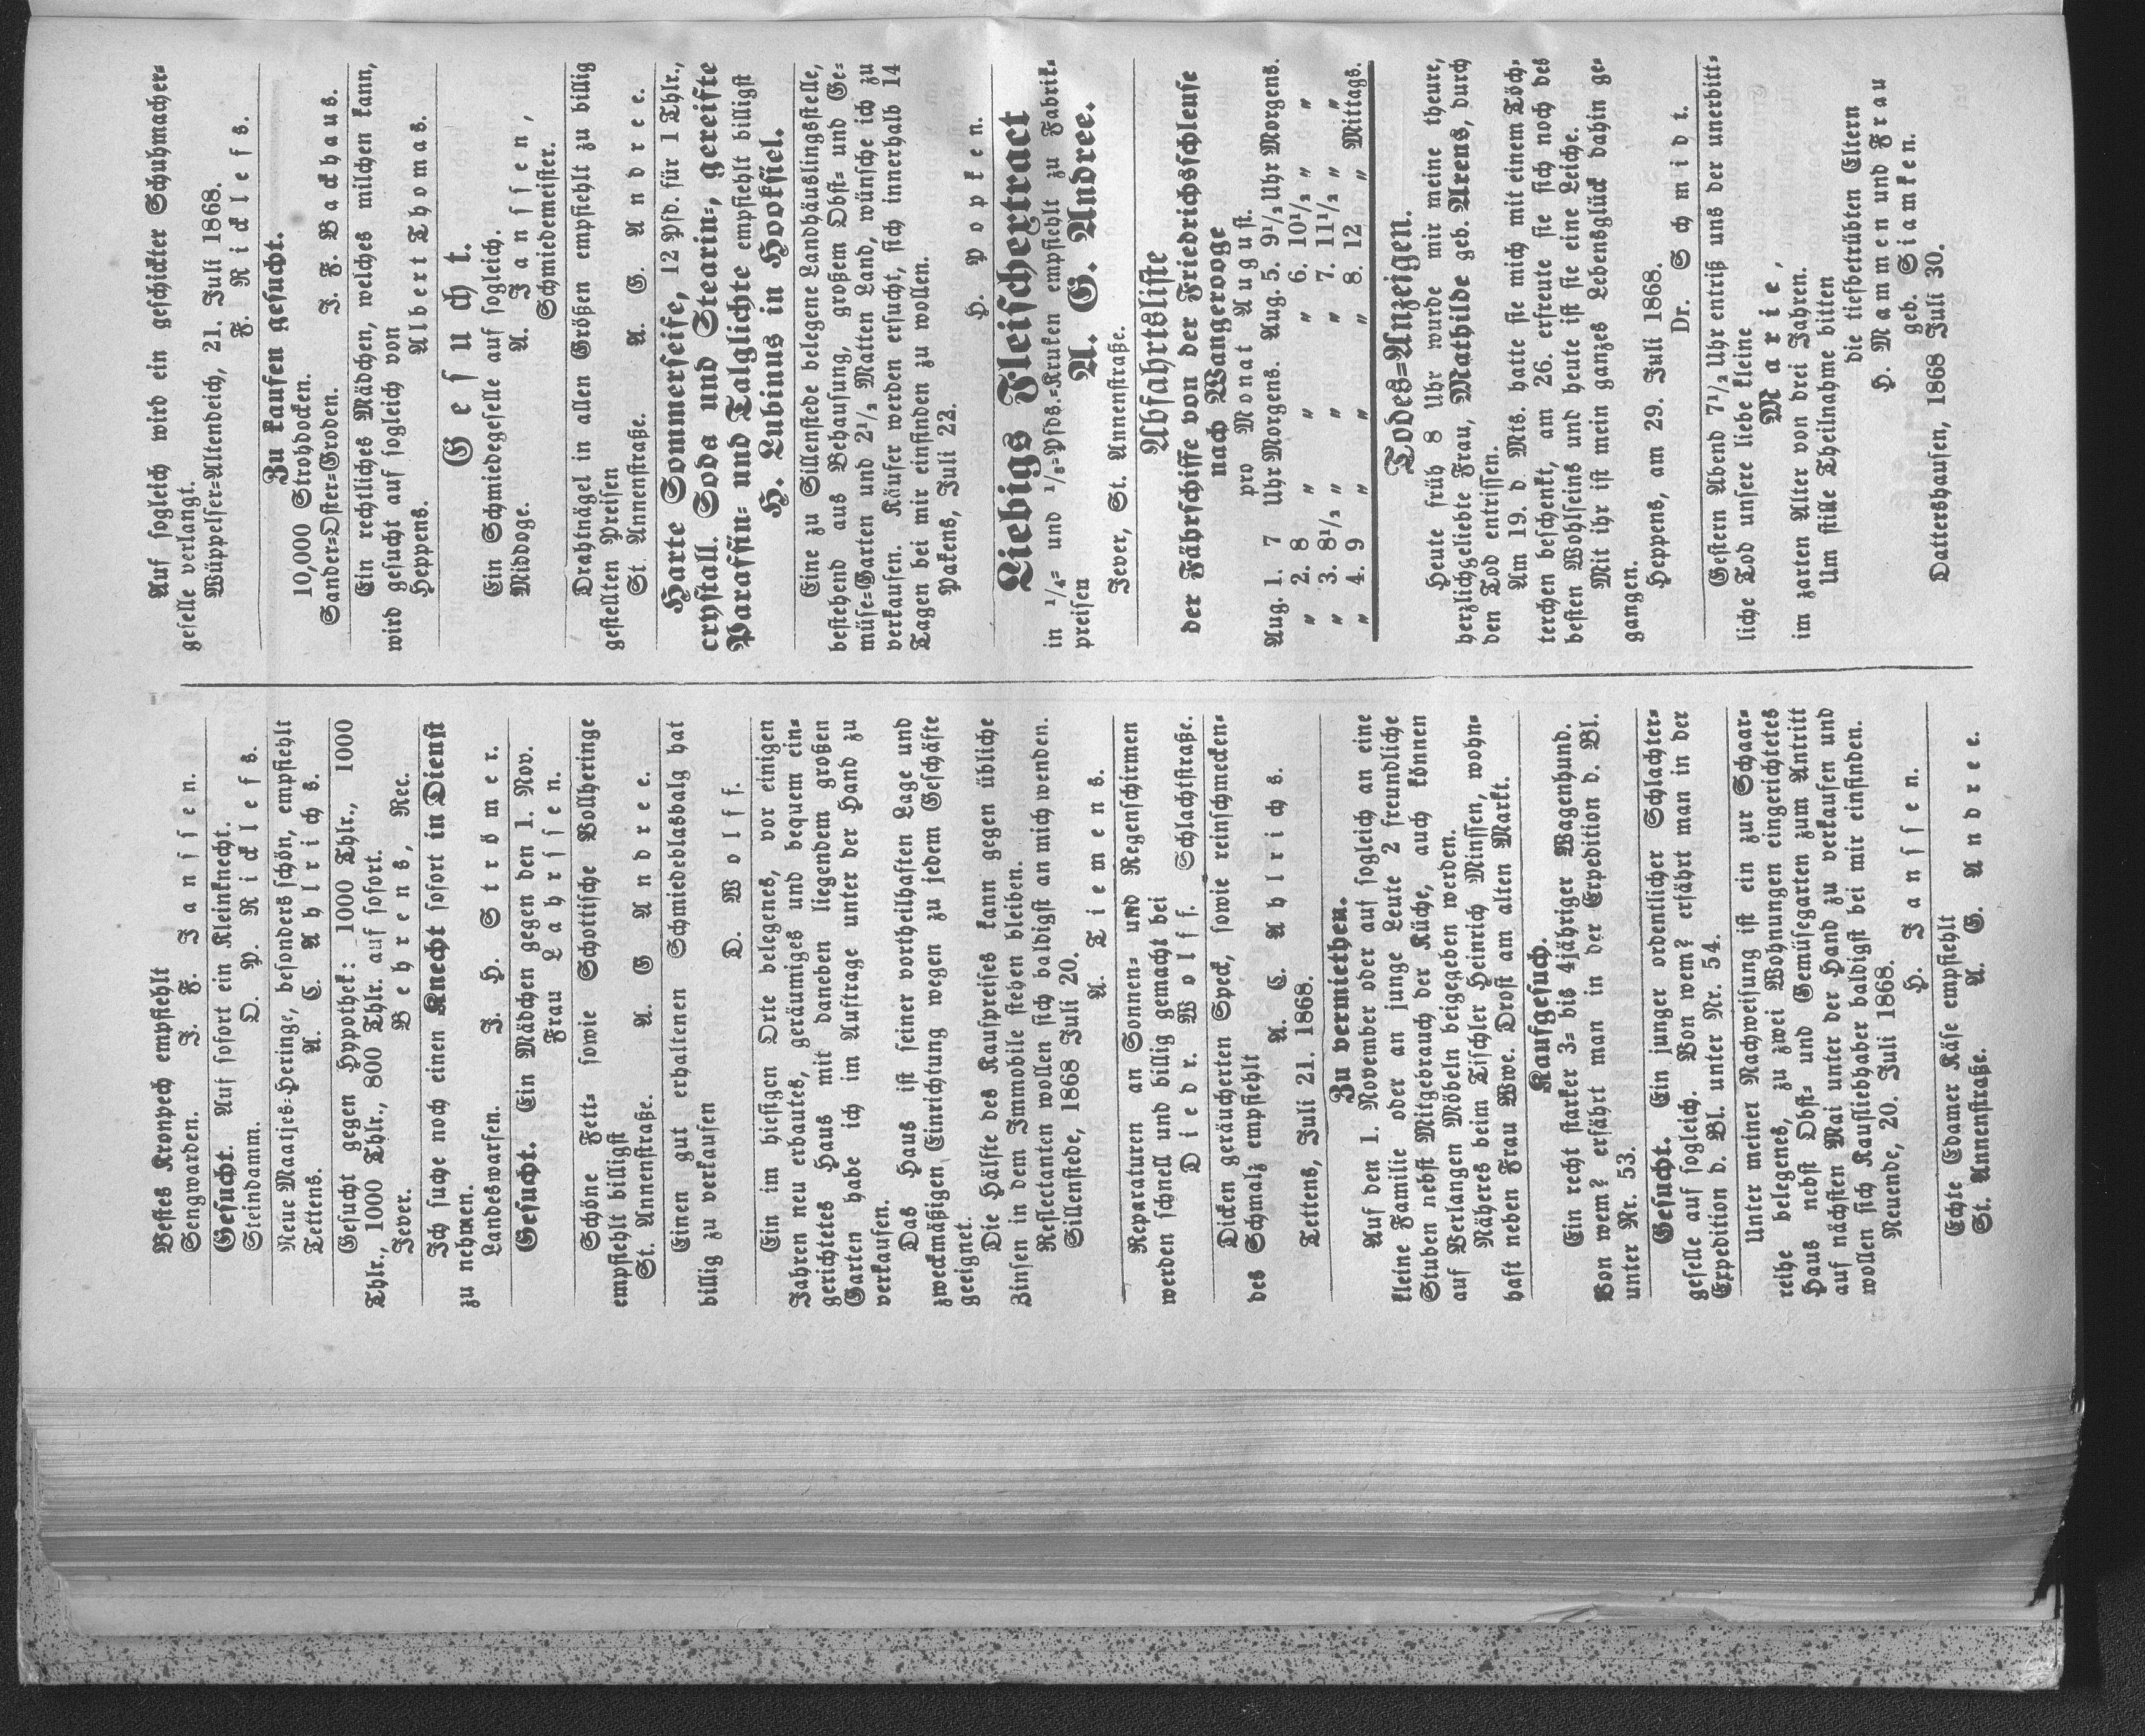 Bestes Kronpech empfiehlt
Sengwarden. J. F. Janssen.
Gesucht. Auf sofort ein Kleinknecht.
Steindamm. D. P. Ricklefs.
Neue Maatjes-Heringe, besonders schön, empfiehlt
Tettens. A. C. Ahlrichs.
Gesucht gegen Hypothek: 1000 Thlr., 1000
Thlr., 1000 Thlr., 800 Thlr. auf sofort.
Jever. Behrens, Rec.
Ich suche noch einen Knecht sofort in Dienst
zu nehmen.
Landeswarfen. J. H. Strömer.
Gesucht. Ein Mädchen gegen den 1. Nov.
Frau Lahrssen.
Schöne Fett- sowie Schottische Vollheringe
empfiehlt billigst
St. Annenstraße. A. G Andree.
Einen gut erhaltenen Schmiedeblasbalg hat
billig zu verkaufen D. Wolff.
Ein im hiesigen Orte belegenes, vor einigen
Jahren neu erbautes, geräumiges und bequem ein-
gerichtetes Haus mit daneben liegendem großen
Garten habe ich im Auftrage unter der Hand zu
verkaufen.
Das Haus ist seiner vortheilhaften Lage und
zweckmäßigen Einrichtung wegen zu jedem Geschäfte
geeignet.
Die Hälfte des Kaufpreises kann gegen übliche
Zinsen in dem Immobile stehen bleiben.
Reflectanten wollen sich baldigst an mich wenden.
Sillenstede, 1868 Juli 20.
A. Tiemens.
Reparaturen an Sonnen- und Regenschirmen
werden schnell und billig gemacht bei
Diedr. Wolff. Schlachtstraße.
Dicken geräucherten Speck, sowie reinschmecken-
des Schmalz empfiehlt
A. C. Ahlrichs.
Tettens, Juli 21. 1868.
Zu vermiethen.
Auf den 1. November oder auf sogleich an eine
kleine Familie oder an junge Leute 2 freundliche
Stuben nebst Mitgebrauch der Küche, auch können
auf Verlangen Möbeln beigegeben werden.
Näheres beim Tischler Heinrich Minssen, wohn-
haft neben Frau Wwe. Drost am alten Markt.
Kaufgesuch.
Ein recht starker 3- bis 4jähriger Wagenhund.
Von wem? erfährt man in der Expedition d. Bl.
unter Nr. 53.
Gesucht. Ein junger ordentlicher Schlachter-
geselle auf sogleich. Von wem? erfährt man in der
Expedition d. Bl. unter Nr. 54.
Unter meiner Nachweisung ist ein zur Schaar-
reihe belegenes, zu zwei Wohnungen eingerichtetes
Haus nebst Obst- und Gemüsegarten zum Antritt
auf nächsten Mai unter der Hand zu verkaufen und
wollen sich Kaufliebhaber baldigst bei mir einfinden.
Neuende, 20. Juli 1868.
H. Janssen.
Echte Edamer Käse empfiehlt
St. Annenstraße. A. G. Andree.
Auf sogleich wird ein geschickter Schuhmacher-
geselle verlangt.
Wüppelser-Altendeich, 21. Juli 1868.
F. Ricklefs.
Zu kaufen gesucht.
10,000 Strohdocken.
Sander-Oster-Groden. J. F. Backhaus.
Ein rechtliches Mädchen, welches milchen kann,
wird gesucht auf sogleich von
Heppens. Albert Thomas.
Gesucht.
Ein Schmiedegeselle auf sogleich.
Middoge. A. Janssen,
Schmiedemeister.
Drahtnägel in allen Größen empfiehlt zu billig
gestellten Preisen
St. Annenstraße. A. G. Andree.
Harte Sommerseife, 12 Pfd. für 1 Thlr.,
crystall. Soda und Stearin-, gereifte
Paraffin- und Talglichte empfiehlt billigst
H. Lubinus in Hooksiel.
Eine zu Sillenstede belegene Landhäuslingsstelle,
bestehend aus Behausung, großem Obst- und Ge-
müse-Garten und 2½ Matten Land, wünsche ich zu
verkaufen. Käufer werden ersucht, sich innerhalb 14
Tagen bei mir einfinden zu wollen.
Pakens, Juli 22.
H. Popken.
Liebigs Fleischextract
in ¼- und ⅛-Pfds.-Kruken empfiehlt zu Fabrik-
preisen A. G. Andree.
Jever, St. Annenstraße.
Abfahrtsliste
der Fährschiffe von der Friedrichsschleuse
nach Wangerooge
pro Monat August.
Aug. 1. 7 Uhr Morgens. Aug. 5. 9½ Uhr Morgens.
" 2. 8 " " " 6. 10½ " "
" 3. 8½ " " " 7. 11½ " "
" 4. 9 " " " 8. 12 " Mittags.
Todes-Anzeigen.
Heute früh 8 Uhr wurde mir meine theure,
herzlichgeliebte Frau, Mathilde geb. Arens, durch
den Tod entrissen.
Am 19. d. Mts. hatte sie mich mit einem Töch-
terchen beschenkt, am 26. erfreute sie sich noch des
besten Wohlseins und heute ist sie eine Leiche.
Mit ihr ist mein ganzes Lebensglück dahin ge-
gangen.
Heppens, am 29. Juli 1868.
Dr. Schmidt.
Gestern Abend 7½ Uhr entriß uns der unerbitt-
liche Tod unsere liebe kleine
Marie,
im zarten Alter von drei Jahren.
Um stille Theilnahme bitten
die tiefbetrübten Eltern
H. Mammen und Frau
geb. Siamken.
Dattershausen, 1868 Juli 30.